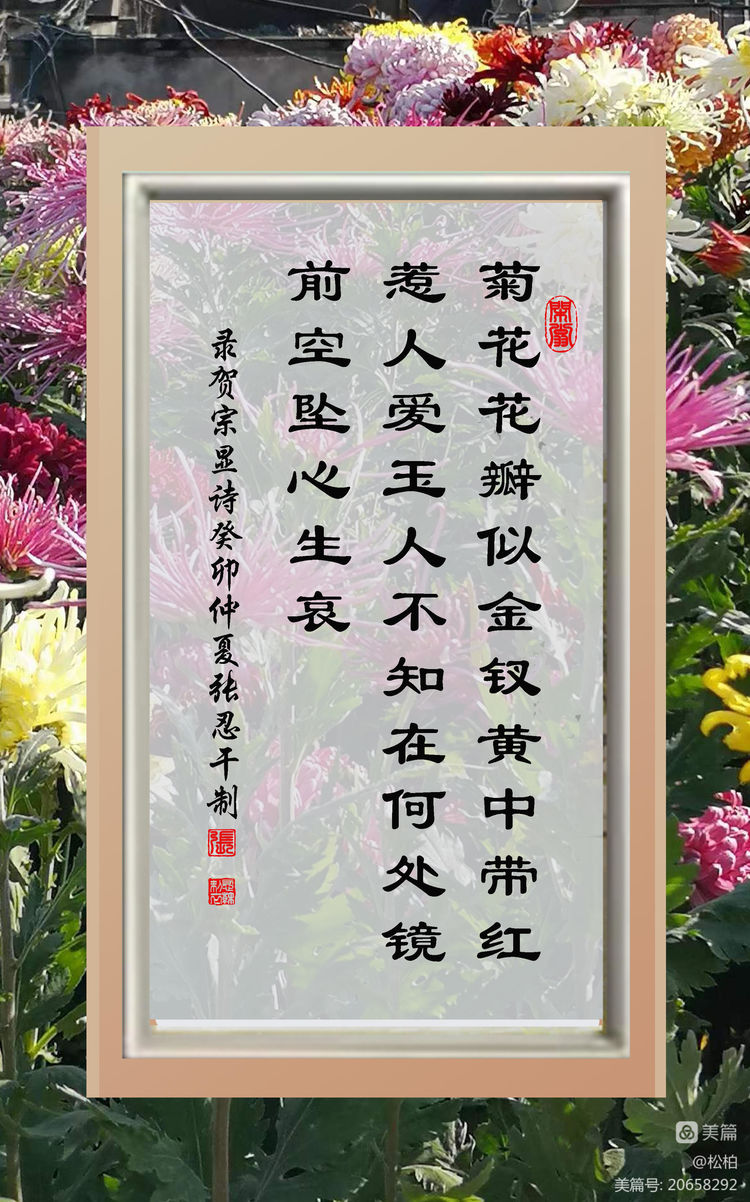 菊花花瓣似金钗黄中带红
惹人爱玉人不知在何处镜
前空坠心生哀
录贺宗显诗癸卯仲夏张忍干制
張
美篇
@松柏
美篇号: 20658292